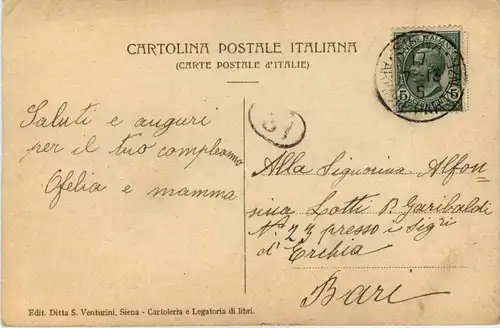 CARTOLINA POSTALE ITALIANA
(CARTE POSTALE d'ITALIE)
Saluti e auguri
per il tuo compleanno
Ofelia e mamma
Alla Signorina Alfon-
sina Lotti P. Garibaldi
N.º 23 presso i Sigri
d'Erchia
Bari
Edit. Ditta S. Venturini, Siena - Cartoleria e Legatoria di libri.